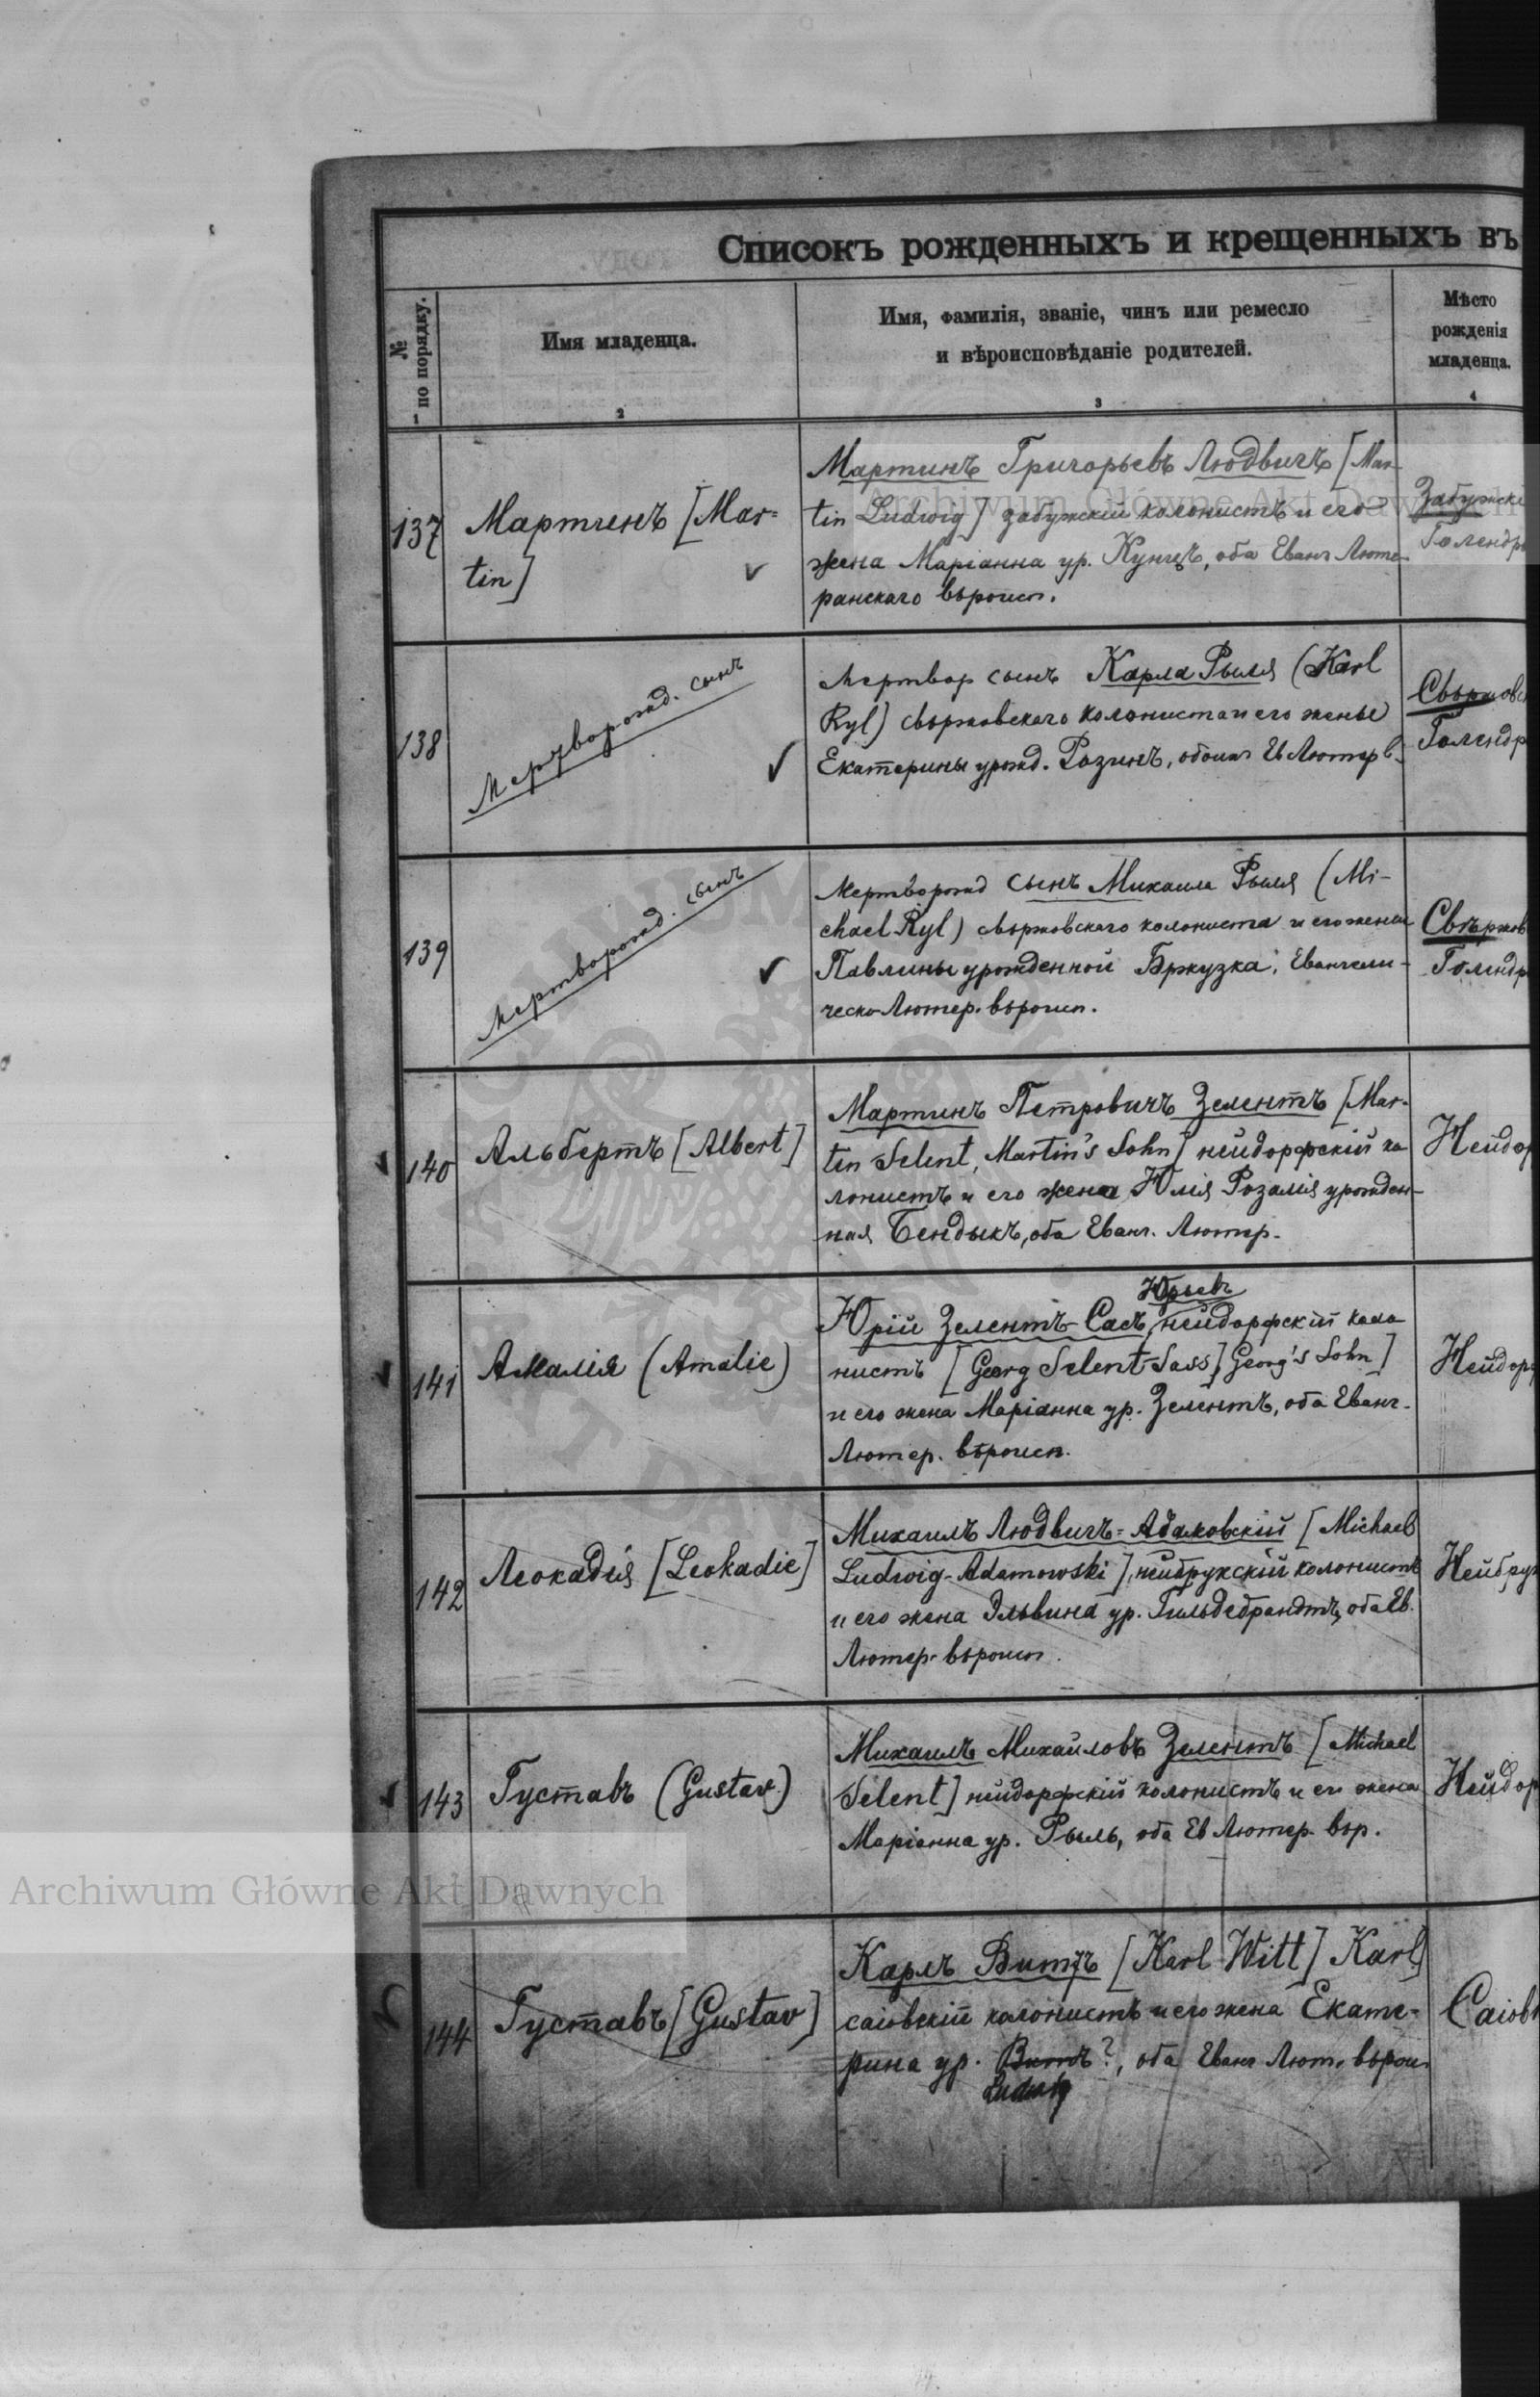 Списокъ рожденныхъ и крещенныхъ въ
№ по порядку.
Имя младенца.
Имя, фамилія, званіе, чинъ или ремесло
и вѣроисповѣданіе родителей.
Мѣсто
рожденія
младенца.
1
2
3
4
137
Мартинъ [Mar=
tin]
Мартинъ Григорьевъ Людвигъ [Mar-
tin Ludwig] забужскій колонистъ и его
жена Маріанна ур. Кунцъ, оба Еванг Люте-
ранскаго вѣроисп.
Забужскі
Голендры
138
Мертворожд. сынъ
Мертвор сынъ Карла Рыля (Karl
Ryl) свѣржовскаго колониста и его жены
Екатерины урожд. Розинъ, обоихъ Ев Лютер в.
Свѣржовс
Голендр
139
Мертворожд. сынъ
Мертворожд сынъ Михаила Рыля (Mi-
chael Ryl) свѣржовскаго колониста и его жены
Павлины урожденной Бржузка, Евангели-
ческо-Лютер. вѣроисп.
Свѣржов
Голендр
140
Альбертъ [Albert]
Мартинъ Петровичъ Зелентъ [Mar-
tin Selent, Martin's Sohn] нейдорфскій ко
лонистъ и его жена Юлія Розалія урожден-
ная Бендыкъ, оба Еванг. Лютер.
Нейдор
141
Амалія (Amalie)
Юрьевъ
Юрій Зелентъ-Сасъ, нейдорфскій коло
нистъ [Georg Selent-Sass] Georg's Sohn]
и его жена Маріанна ур. Зелентъ, оба Еванг.
Лютер. вѣроисп.
Нейдорф
142
Леокадія [Leokadie]
Михаилъ Людвигъ=Адамовскій [Michael
Ludwig-Adamowski], нейбрукскій колонистъ
и его жена Эльвина ур. Гильдебрандтъ, оба Ев.
Лютер. вѣроисп.
Нейбрук
143
Густавъ (Gustav)
Михаилъ Михайловъ Зелентъ [Michael
Selent] нейдорфскій колонистъ и его жена
Маріанна ур. Рыль, оба Ев Лютер. вѣр.
Нейдор
144
Густавъ [Gustav]
Карлъ Виттъ [Karl Witt] Karl]
саіовскій колонистъ и его жена Екате-
рина ур. Виттъ?, оба Еванг Лют. вѣроис.
Ludwig
Саіовк
Archiwum Główne Akt Dawnych
Archiwum Główne Akt Dawnych